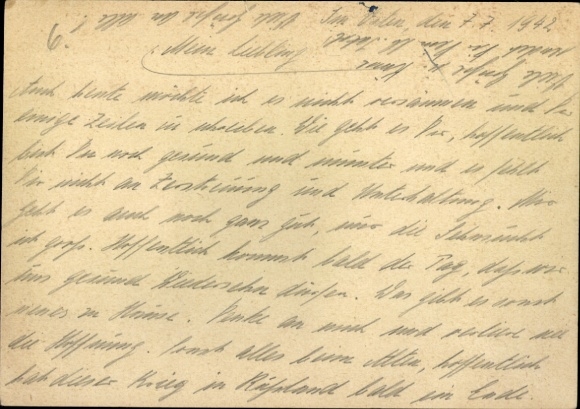 6.
Im Osten, den 7.7.1942
Mein Liebling
Auch heute möchte ich es nicht versäumen und Dir
einige Zeilen zu schreiben. Wie geht es Dir, hoffentlich
bist Du noch gesund und munter und es fehlt
Dir nicht an Zerstreuung und Unterhaltung. Mir
geht es auch noch ganz gut, nur die Sehnsucht
ist groß. Hoffentlich kommt bald der Tag, daß wir
uns gesund Wiedersehen dürfen. Was gibt es sonst
neues zu Hause. Denke an mich und verliere nie
die Hoffnung. Sonst alles beim Alten, hoffentlich
hat dieser Krieg in Rußland bald ein Ende.